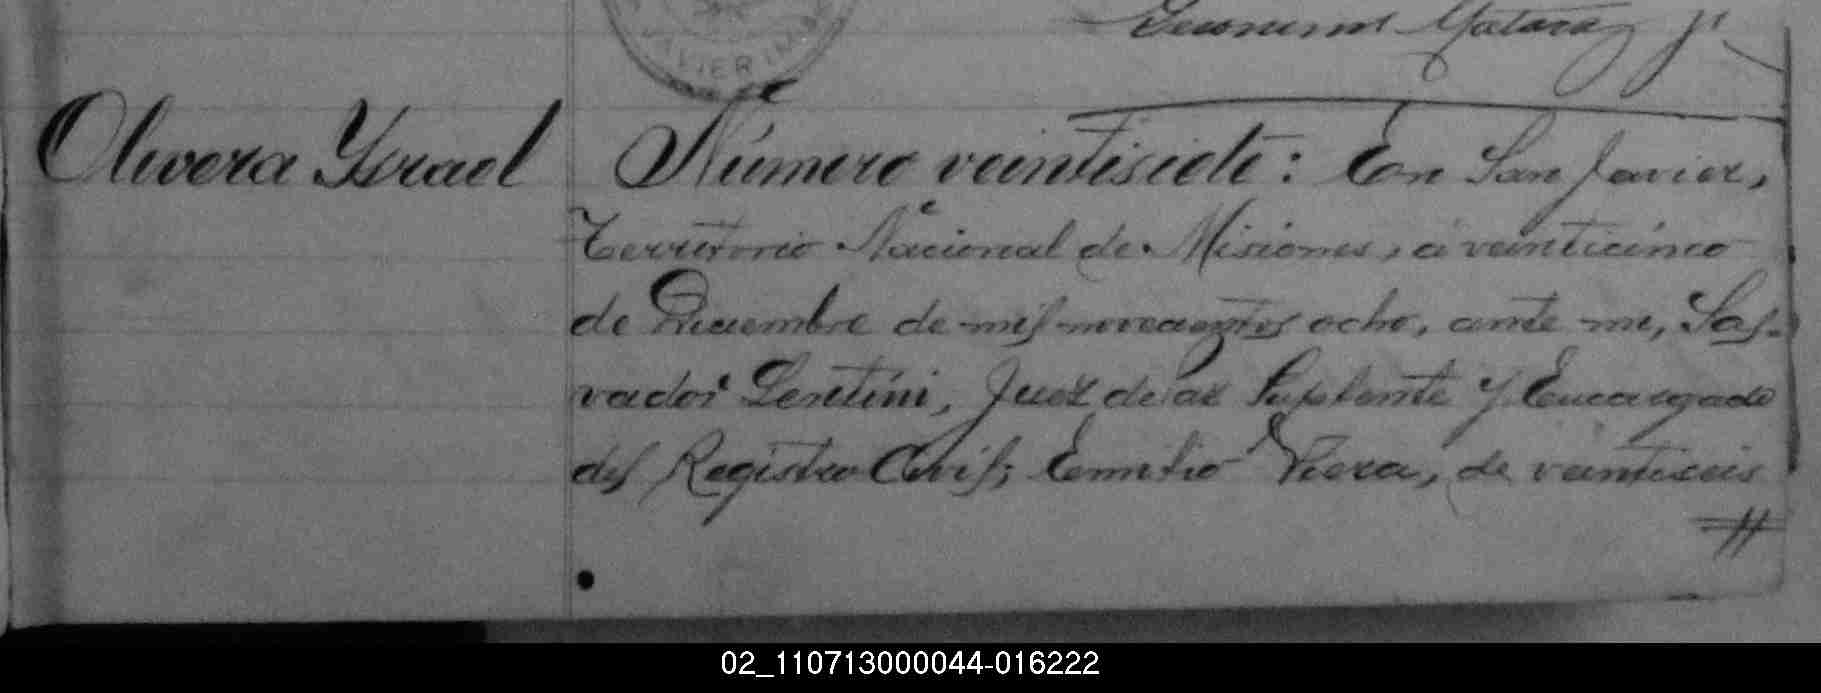 Geronimo Matara jr
VIER
Olivera Ysrael
Número veintisiete: En San Javier,
Territorio Nacional de Misiones, a veinticinco
de Diciembre de mil novecientos ocho, ante mi, Sal-
vador Lentini, Juez de Paz Suplente y Encargado
del Registro Civil; Emilio Viera, de veintiseis
02_110713000044-016222